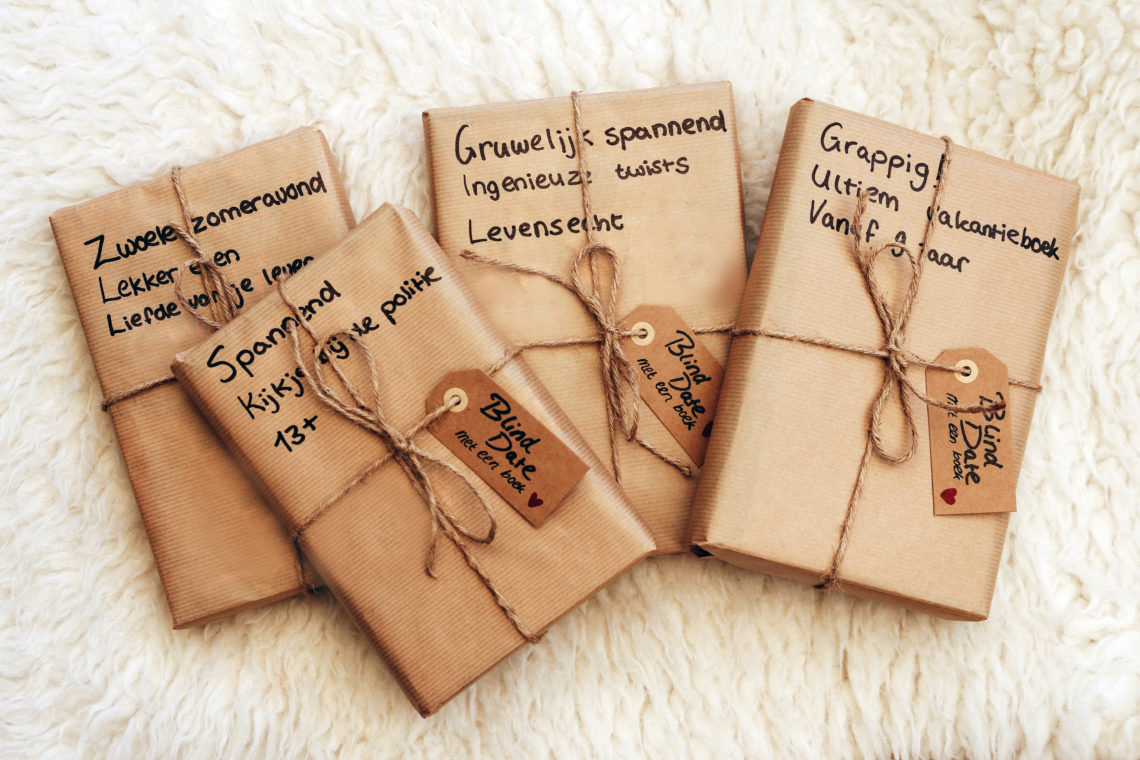 Zwoele zomeravond
Lekker eten
Liefde van je leven
Spannend
Kijkje bij de politie
13+
Blind
Date
met een boek
Gruwelijk spannend
Ingenieuze twists
Levensecht
Blind
Date
met een boek
Grappig!
Ultiem vakantieboek
Vanaf 9 jaar
Blind
Date
met een boek